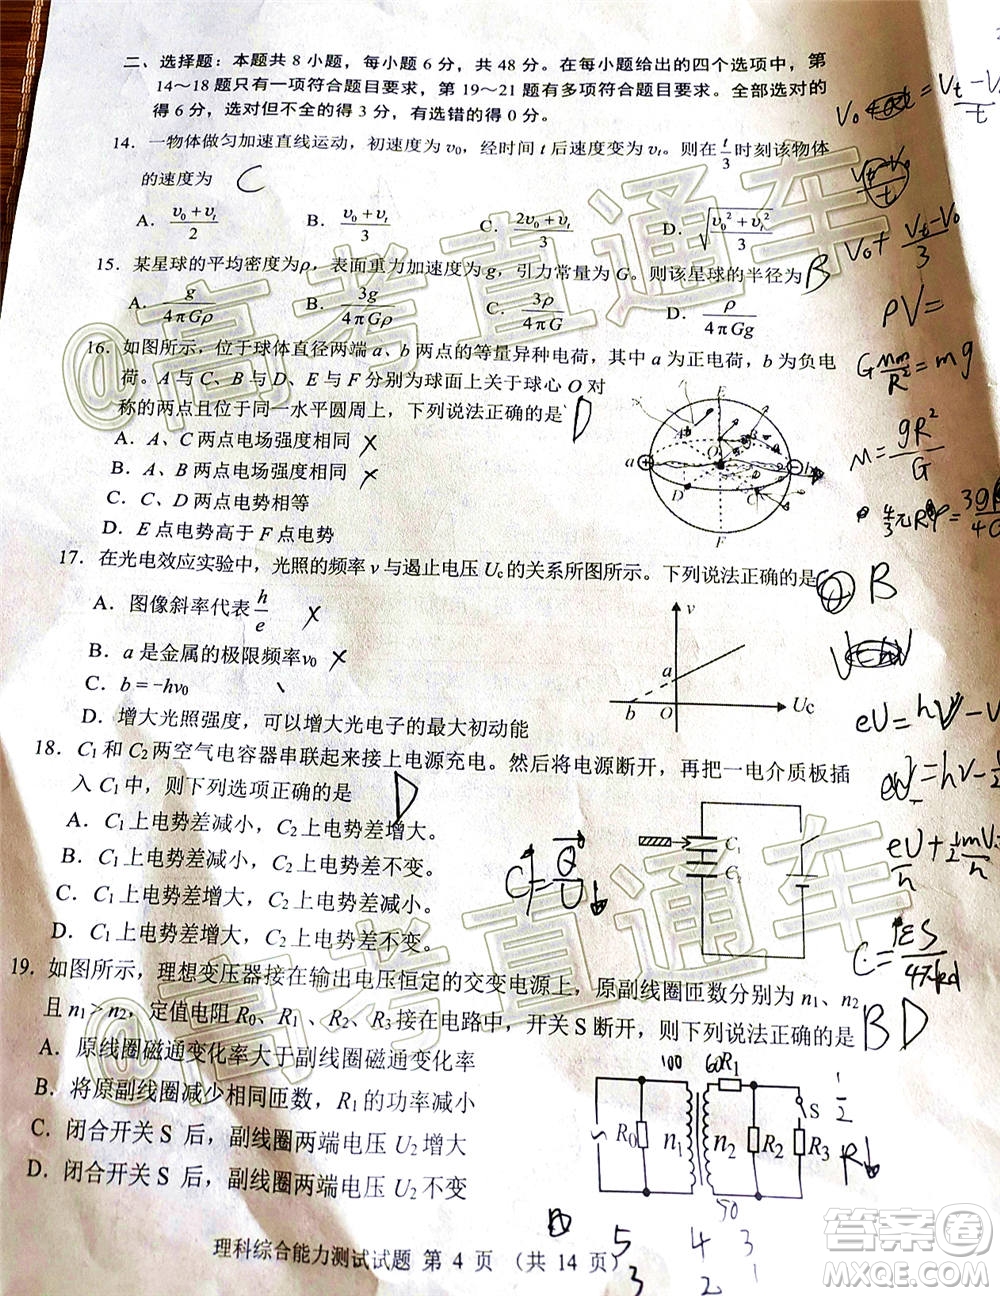 二、选择题：本题共 8 小题，每小题 6 分，共 48 分。在每小题给出的四个选项中，第
14～18 题只有一项符合题目要求，第 19～21 题有多项符合题目要求。全部选对的
得 6 分，选对但不全的得 3 分，有选错的得 0 分。
14．一物体做匀加速直线运动，初速度为 v₀，经时间 t 后速度变为 vₜ。则在 t/3 时刻该物体
的速度为 C
A．(v₀+vₜ)/2 B．(v₀+vₜ)/3 C．(2v₀+vₜ)/3 D．√((v₀²+vₜ²)/3)
15．某星球的平均密度为ρ，表面重力加速度为 g，引力常量为 G。则该星球的半径为 B
A．g/(4πGρ) B．3g/(4πGρ) C．3ρ/(4πG) D．ρ/(4πGg)
16．如图所示，位于球体直径两端 a、b 两点的等量异种电荷，其中 a 为正电荷，b 为负电
荷。A 与 C、B 与 D、E 与 F 分别为球面上关于球心 O 对
称的两点且位于同一水平圆周上，下列说法正确的是 D
A．A、C 两点电场强度相同 ×
B．A、D 两点电场强度相同
C．C、D 两点电势相等
D．E 点电势高于 F 点电势
a A b B O E D C b F
17．在光电效应实验中，光照的频率 ν 与遏止电压 Uc 的关系所图所示。下列说法正确的是 B
A．图像斜率代表 h/e ×
B．a 是金属的极限频率ν₀ ×
C．b = -hν₀
D．增大光照强度，可以增大光电子的最大初动能
ν a b O Uc
18．C₁ 和 C₂ 两空气电容器串联起来接上电源充电。然后将电源断开，再把一电介质板插
入 C₁ 中，则下列选项正确的是 D
A．C₁ 上电势差减小，C₂ 上电势差增大。
B．C₁ 上电势差减小，C₂ 上电势差不变。
C．C₁ 上电势差增大，C₂ 上电势差减小。
D．C₁ 上电势差增大，C₂ 上电势差不变。
C₁
C₂
C = Q/U
19．如图所示，理想变压器接在输出电压恒定的交变电源上，原副线圈匝数分别为 n₁、n₂
且 n₁ > n₂，定值电阻 R₀、R₁ 、R₂、R₃ 接在电路中，开关 S 断开，则下列说法正确的是 BD
A．原线圈磁通变化率大于副线圈磁通变化率
B．将原副线圈减少相同匝数，R₁ 的功率减小
C．闭合开关 S 后，副线圈两端电压 U₂ 增大
D．闭合开关 S 后，副线圈两端电压 U₂ 不变
100 60 R₁
R₀ n₁ n₂ R₂ S R₃
50
1/2
R↓
5 4 3
3 2 1
理科综合能力测试试题 第 4 页 （共 14 页）
ρV =
G Mm/R² = mg
M = gR²/G
@高考直通车
@高考直通车
答案圈
MXQE.COM